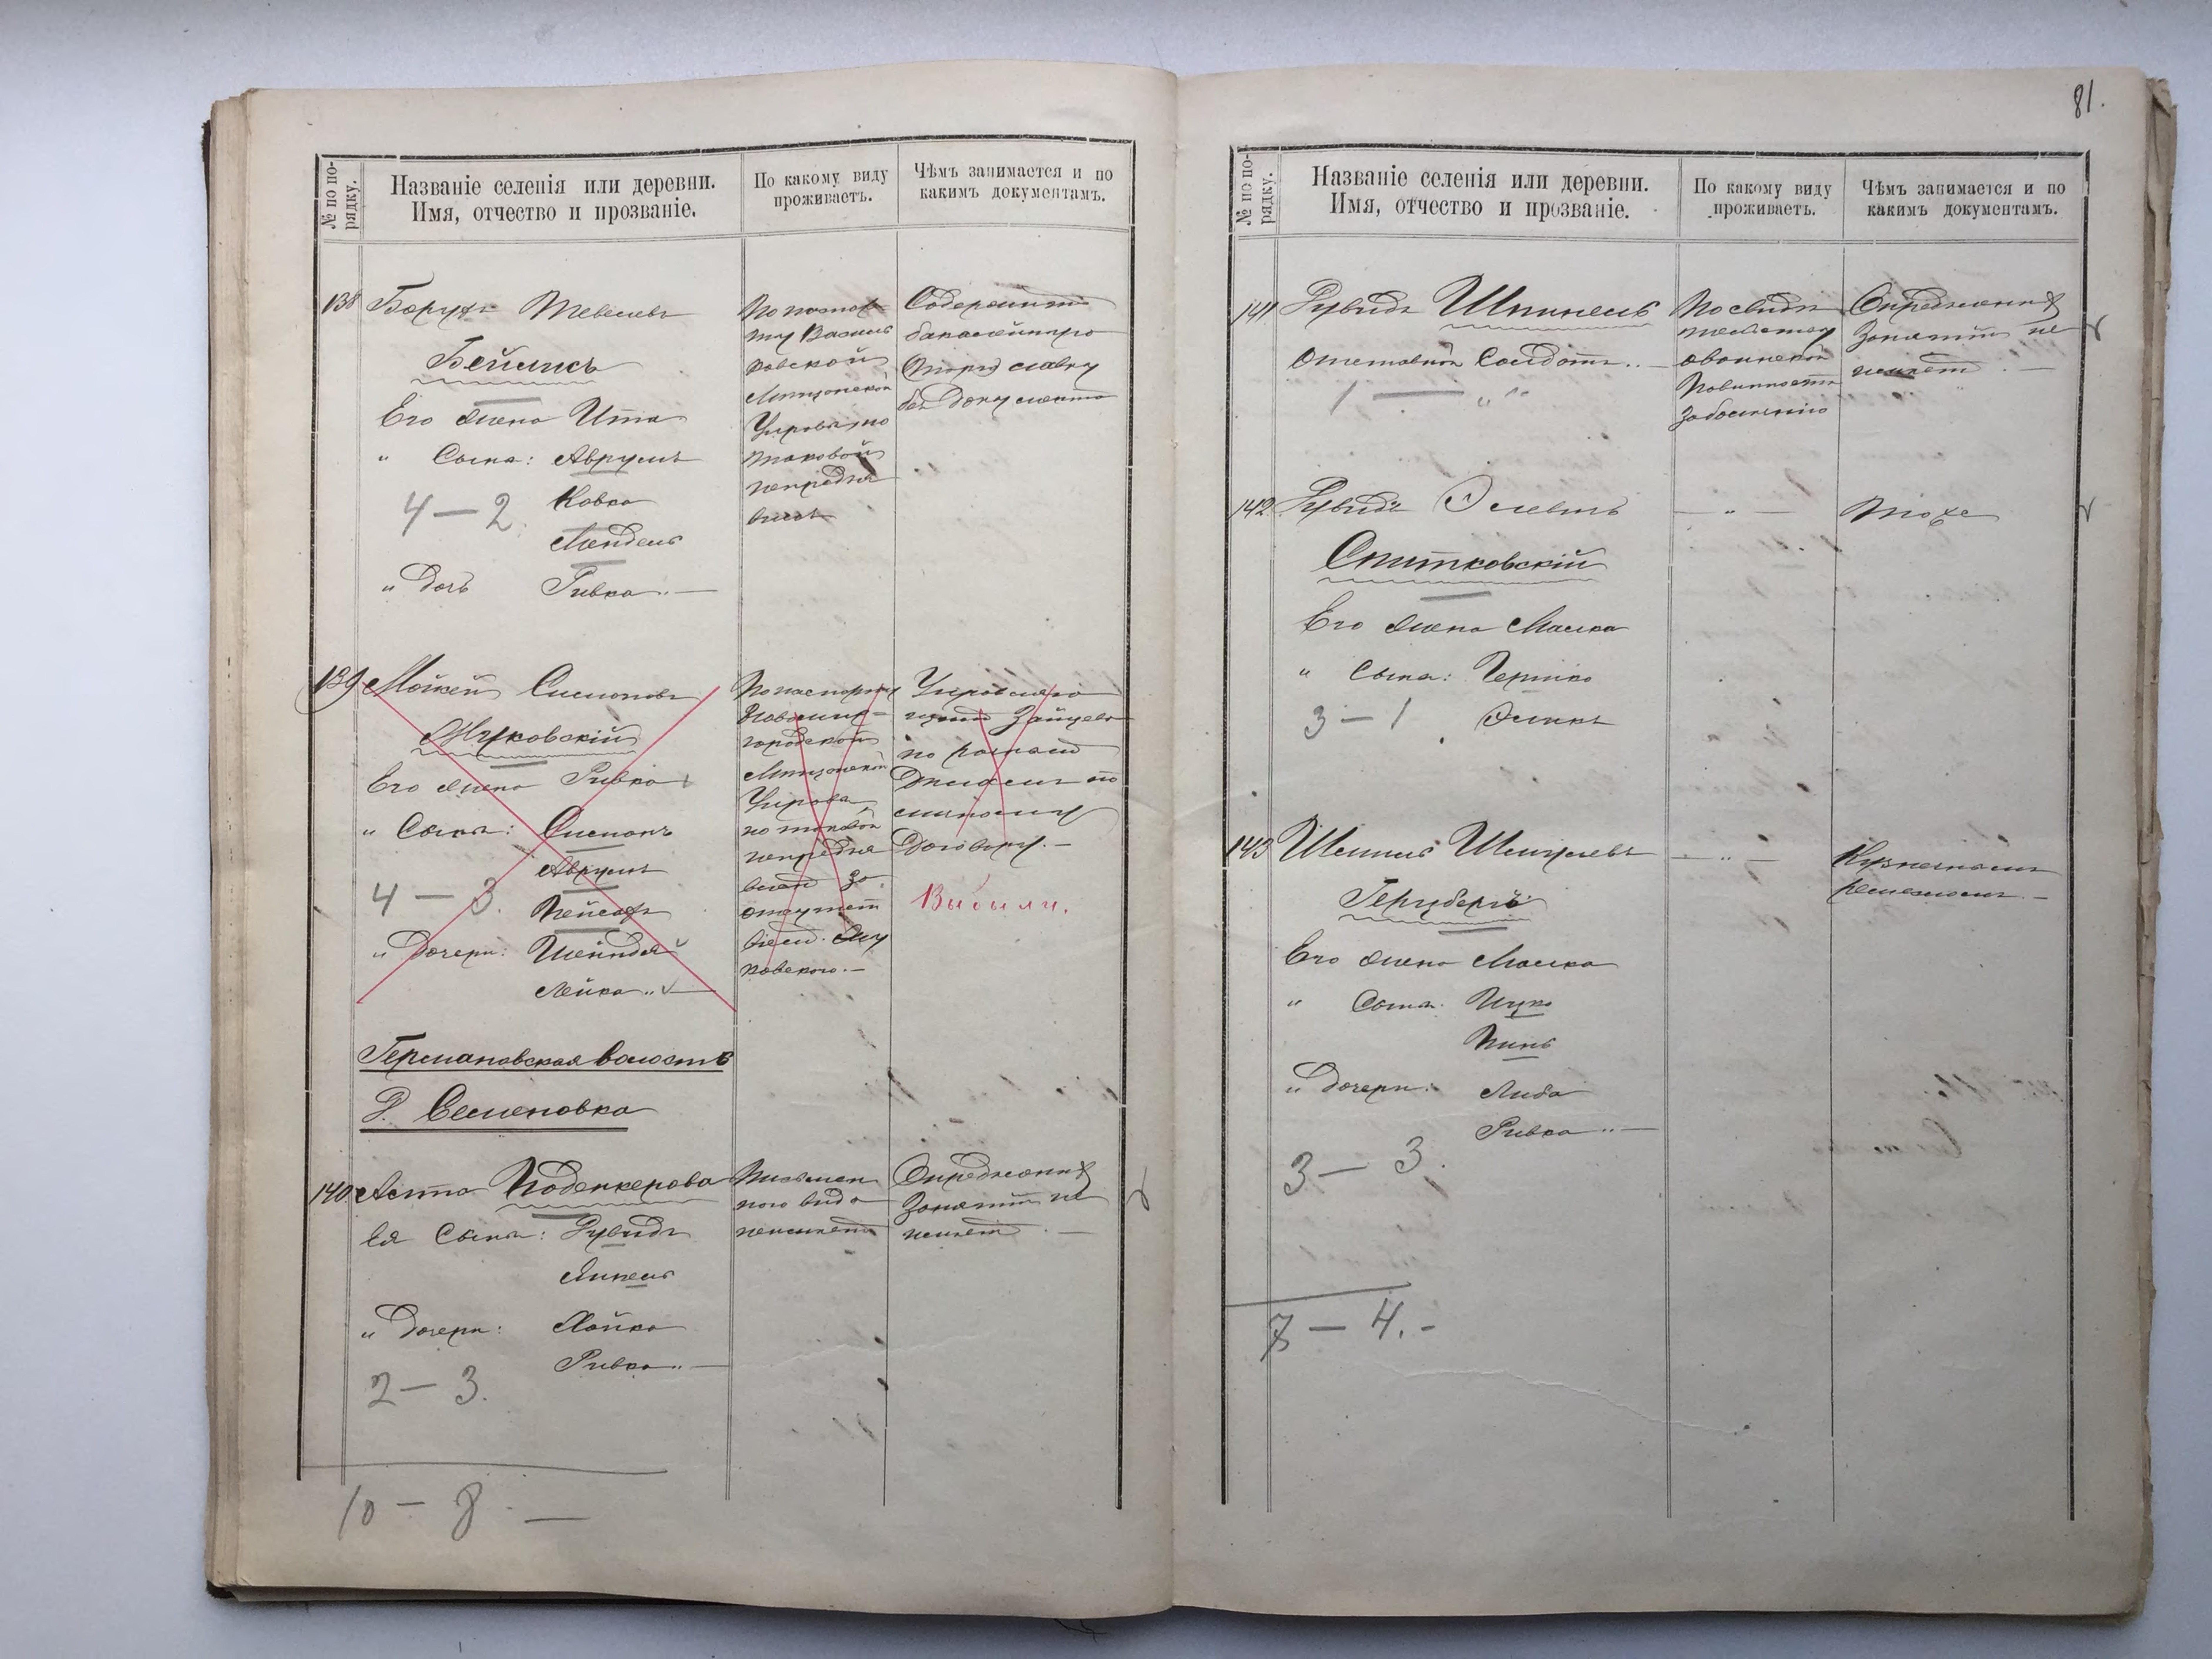 № по по-
рядку.
Названіе селенія или деревни.
Имя, отчество и прозваніе.
По какому виду
проживаетъ.
Чѣмъ занимается и по
какимъ документамъ.
138 Борухъ Тевелевъ
Бейлисъ
Его жена Ита
" Сына: Аврумъ
4 — 2. Ковка
Мендель
" Дочь Ривка
По паспор
ту Василь
ковской
Мѣщанской
Управы, но
таковой
непредъя
вилъ
Содержитъ
бакалейную
лавку
без документа
139 Мойсей Симоновъ
Жуковскій
Его жена Ривка
" Сына: Симонъ
Аврумъ
4 — 3. Пейсахъ
" Дочери: Шейндля
Лейка
По паспорту
Новомир-
городской
Мѣщанской
Управы,
но таковой
непредъя
вленъ за
отсутст
віем. Жу
ковского. —
Управляю
по
Договору. —
Выбыли.
Германовская волость
Д. Семеновка
140 Поденкерова
Ея Сына: Рувидъ
Янкель
" Дочери: Хайка
Ривка
2 — 3.
Письмен
ного вида
неимѣетъ
Опредѣленныхъ
Занятій не
имѣетъ. —
10 — 8. —
81.
№ по по-
рядку.
Названіе селенія или деревни.
Имя, отчество и прозваніе.
По какому виду
проживаетъ.
Чѣмъ занимается и по
какимъ документамъ.
141 Рувидъ Шпинель
Отставной Солдатъ
1 — " "
По свидѣ
тельству
о воинской
Повинности
Опредѣленныхъ
Занятій не
имѣетъ. —
142 Рувидъ
Спитковскій
Его жена Малка
" Сына: Гершко
3 — 1
— " —
Тоже
143 Шмиль Шмулевъ
Герцбергъ
Его жена Малка
" Сына: Ицко
Пинь
" Дочери: Люба
Ривка
3 — 3.
— " —
Кузнечнымъ
ремесломъ. —
7 — 4. -